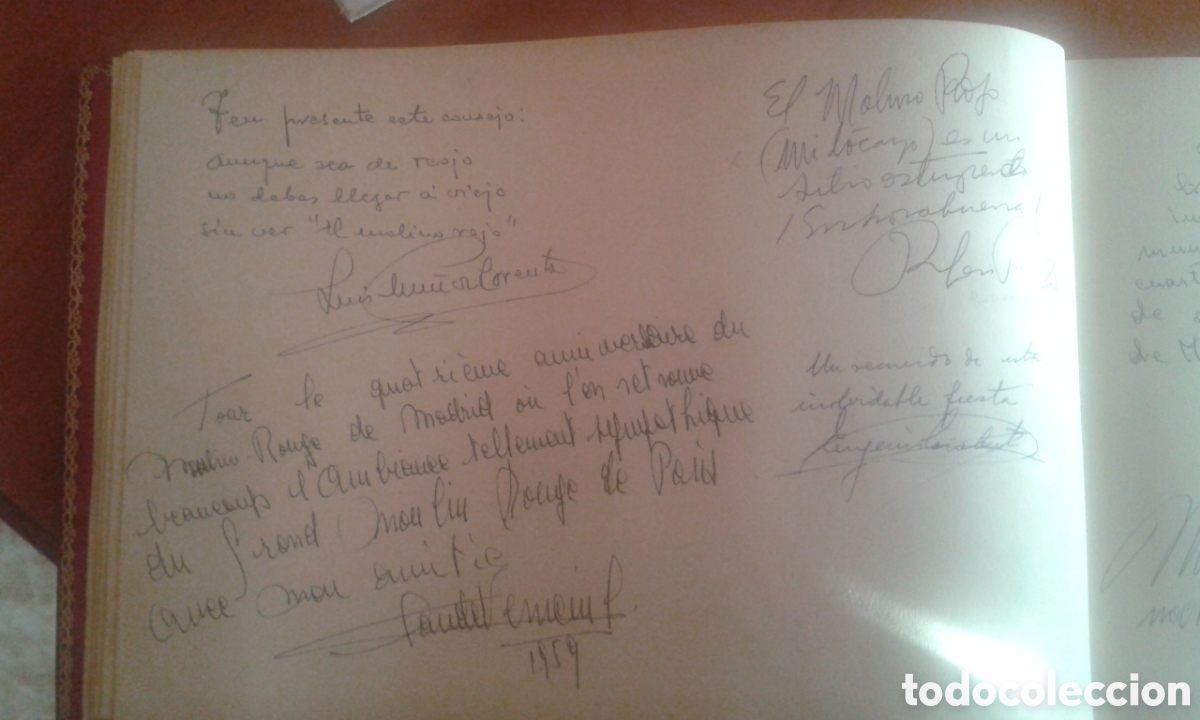 Ten presente este consejo:
aunque sea de reojo
no debes llegar á viejo
sin ver "El molino rojo"
Luis Muñoz Lorente
Pour le quatrième anniversaire du
Molino-Rouge de Madrid où l'on retrouve
beaucoup d'Ambiance tellement sympathique
du Grand Moulin Rouge de Paris.
avec mon amitié
1959
El Molino Rojo
(mi tocayo) es un
sitio estupendo
¡Enhorabuena!
Un recuerdo de esta
inolvidable fiesta
cuart
de
de M
todocoleccion.com